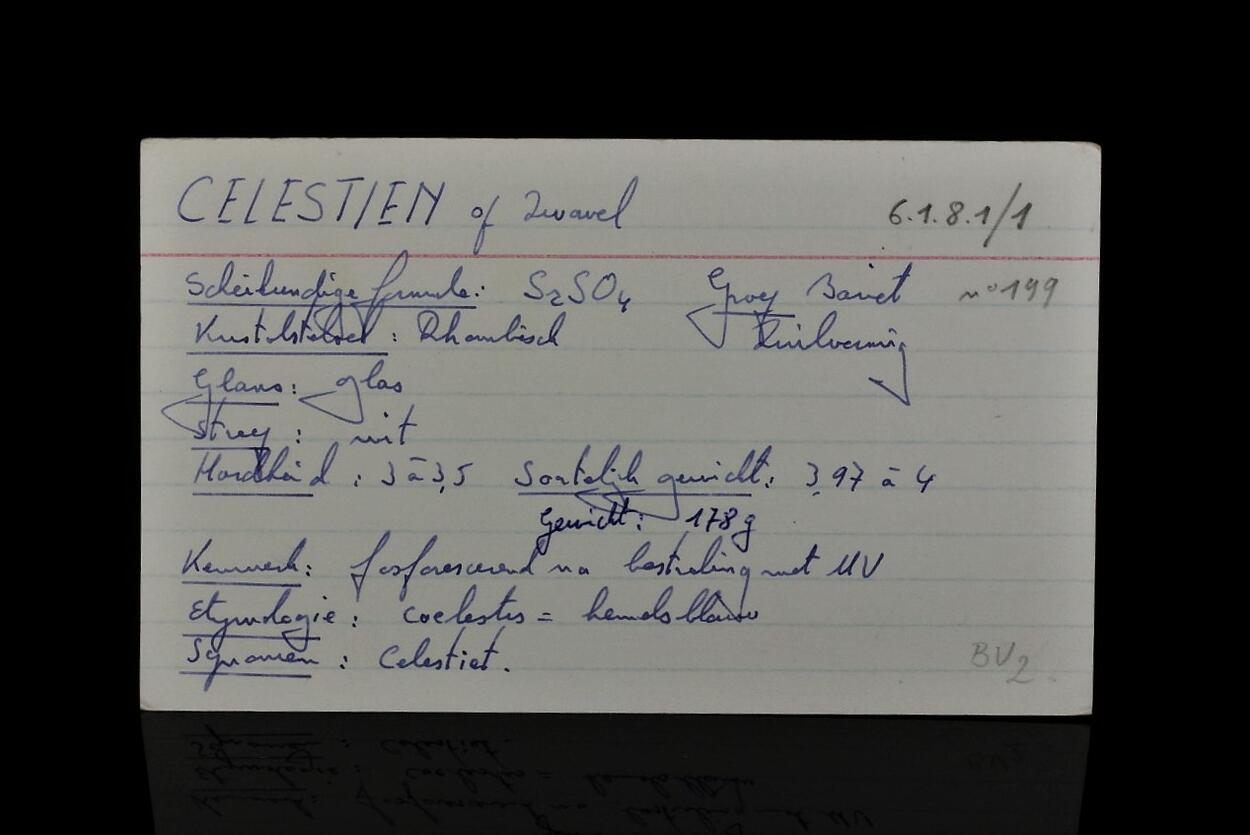 CELESTIEN of Zwavel 6.1.8.1/1
Scheikundige formule: SrSO4 Groep Bariet n° 199
Kristalstelsel: Rhombisch Zuilvormig
Glans: glas
Streep: wit
Hardheid: 3 à 3,5 Soortelijk gewicht: 3,97 à 4
Gewicht: 178g
Kenmerk: fosforescerend na bestraling met UV
Etymologie: coelestis = hemelsblauw
Synoniem: Celestiet.
BV2